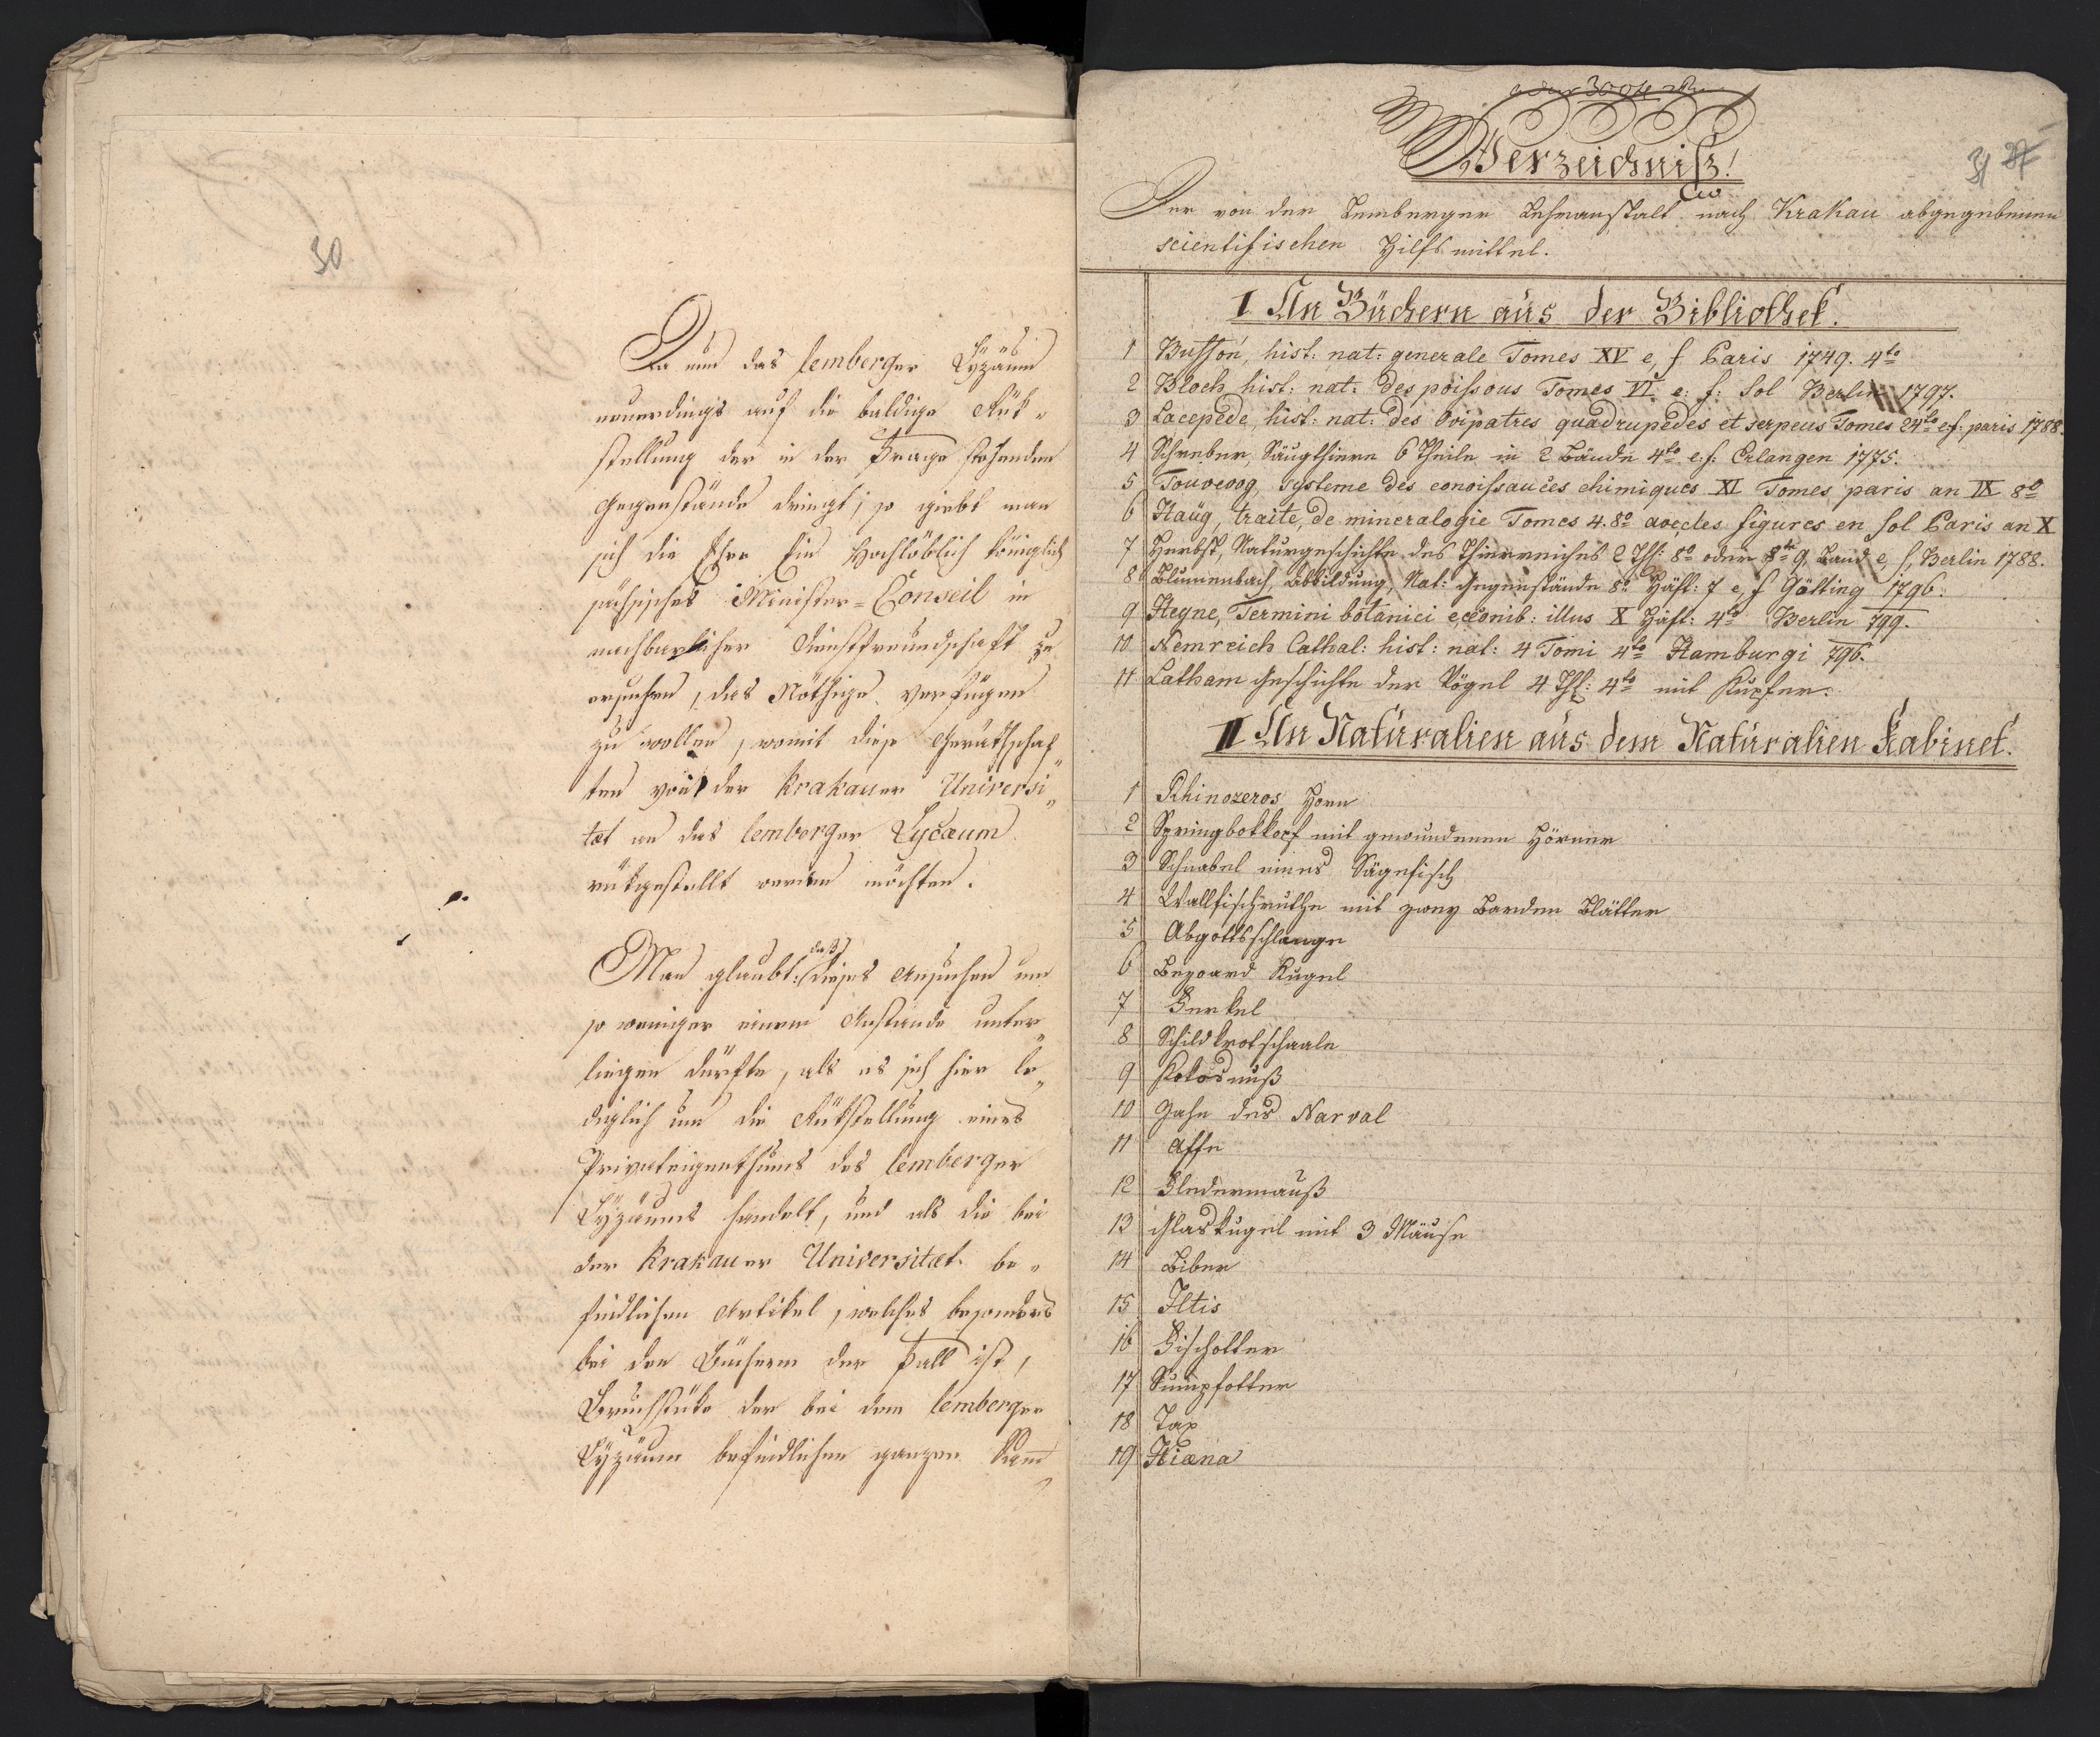 30
Da nun das lemberger Lyzäum
neuerdings auf die baldige Rük„
stellung der in der Frage stehenden
Gegenstände dringt; so giebt man
sich die Ehre Ein Hochlöblich königlich
sächsisches Minister-Conseil in
nachbarlicher Dienstfreundschaft zu
ersuchen, das Nöthige verfügen
zu wollen, womit diese Geräthschaf„
ten von der Krakauer Universi„
tæt an das lemberger Lycæum
rükgestellt werden möchten.
Man glaubt: daß dieses Ansuchen um
so weniger einem Anstande unter„
liegen dürfte, als es sich hier le„
diglich um die Rükstellung eines
Privateigenthums des lemberger
Lyzäums handelt, und als die bei
der Krakauer Universitæt be„
findlichen Artikel, welches besonders
bei den Büchern der Fall ist,
Bruchstüke der bei dem lemberger
Lyzäum befindlichen ganzen Sam„
31
Verzeichniß!
Der von der Lemberger Lehranstalt nach Krakau abgegebenen
scientifischen Hilfsmittel.
I An Büchern aus der Bibliothek.
1 Buffon, hist: nat: generale Tomes XV e, f Paris 1749. 4to
2 Bloch, hist: nat: des poissous Tomes VI. e: f: fol Berlin 1797.
3 Lacepède, hist: nat: des Ovipatres quadrupèdes et serpeus Tomes 2 4to e.f: paris 1788.
4 Schreber, Säugthiere 6 Theile in 2 Bände 4to e: f: Erlangen 1775.
5 Touveoog, systeme des conoissauces chimiques XI Tomes paris an IX 8o
6 Haüg, traite, de mineralogie Tomes 4. 8o avecles figures en fol Paris an X
7 Herbst, Naturgeschichte des Thierreiches 2 Th: 8o oder 9 Band e, f, Berlin 1788.
8 Blumenbach, Abbildung, Nat: Gegenstände 8o Häft: 7 e, f Götting 1796.
9 Heyne, Termini botanici iconib: illus X Häft: 4to Berlin 799.
10 Nemreich Cathal: hist: nat: 4 Tomi 4to Hamburgi 796.
11 Latham Geschichte der Vögel 4 Th: 4to mit Kupfer.
II An Naturalien aus dem Naturalien Kabinet.
1 Rhinozeros Horn
2 Springbokkopf mit gewundenen Hörner
3 Schnabel eines Sägefisch
4 Wallfischruthe mit zwey Barden Blätter
5 Abgottsschlange
6 Bezoard Kugel
7 Ferkel
8 Schildkrotschaale
9 Kokosnuß
10 Zahn des Narval
11 Affe
12 Fledermauß
13 Glaskugel mit 3 Mäuse
14 Biber
15 Iltis
16 Fischotter
17 Sumpfotter
18 Tax
19 Hiæna